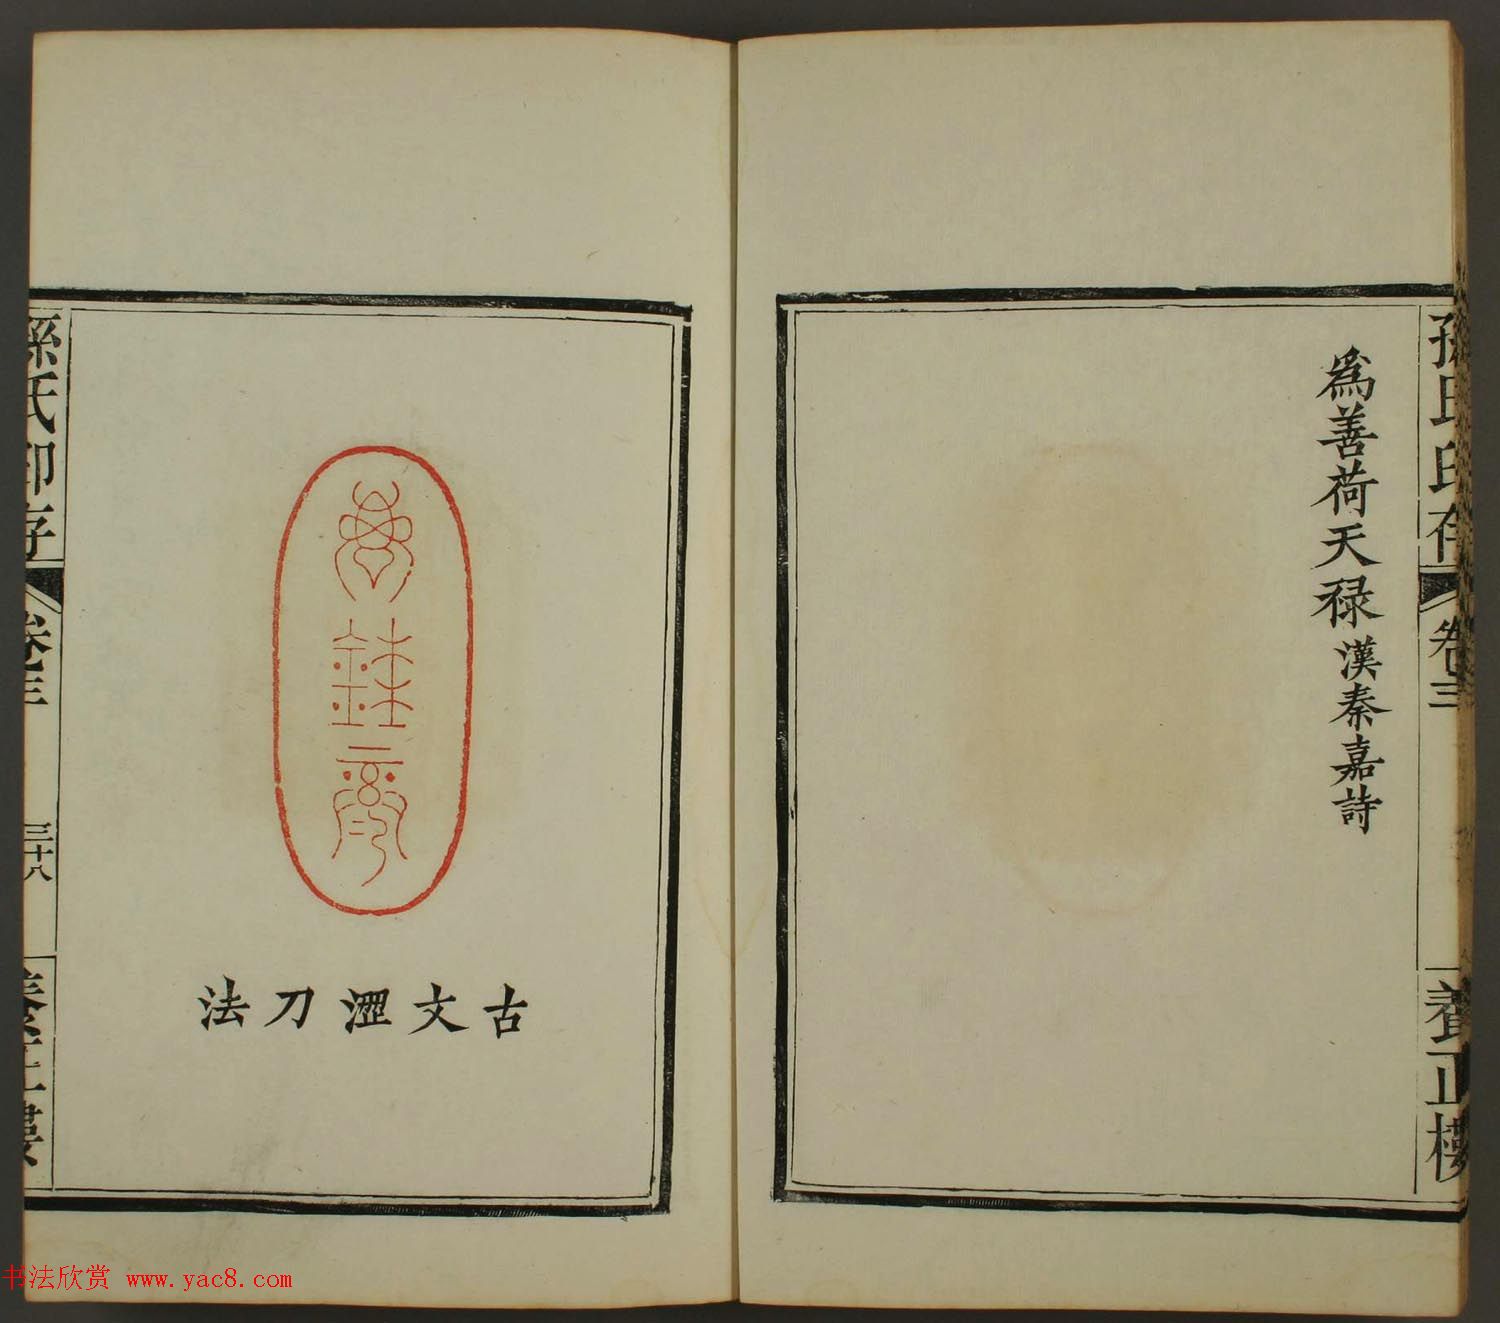 孫氏印存
卷三
養正樓
為善荷天祿漢秦嘉詩
古文澀刀法
孫氏印存
卷三
三十八
養正樓
书法欣赏 www.yac8.com